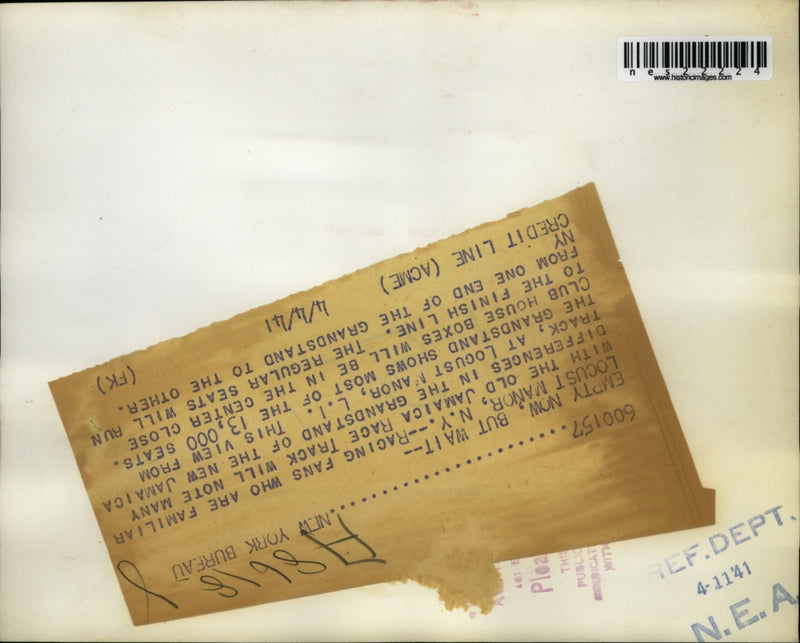 nes22224
www.historicimages.com
600157..........NEW YORK BUREAU
EMPTY NOW BUT WAIT--
LOCUST MANOR, JAMAICA N.Y.--RACING FANS WHO ARE FAMILIAR
WITH THE OLD JAMAICA RACE TRACK WILL NOTE MANY
DIFFERENCES IN THE GRANDSTAND OF THE NEW JAMAICA
TRACK, AT LOCUST MANOR, L.I. THIS VIEW FROM
THE GRANDSTAND SHOWS MOST OF THE 13,000 SEATS.
CLUB HOUSE BOXES WILL BE IN THE CENTER CLOSE
TO THE FINISH LINE. THE REGULAR SEATS WILL RUN
FROM ONE END OF THE GRANDSTAND TO THE OTHER.
NY
CREDIT LINE (ACME) 4/4/41 (FK)
REF.DEPT.
4-11'41
N.E.A.